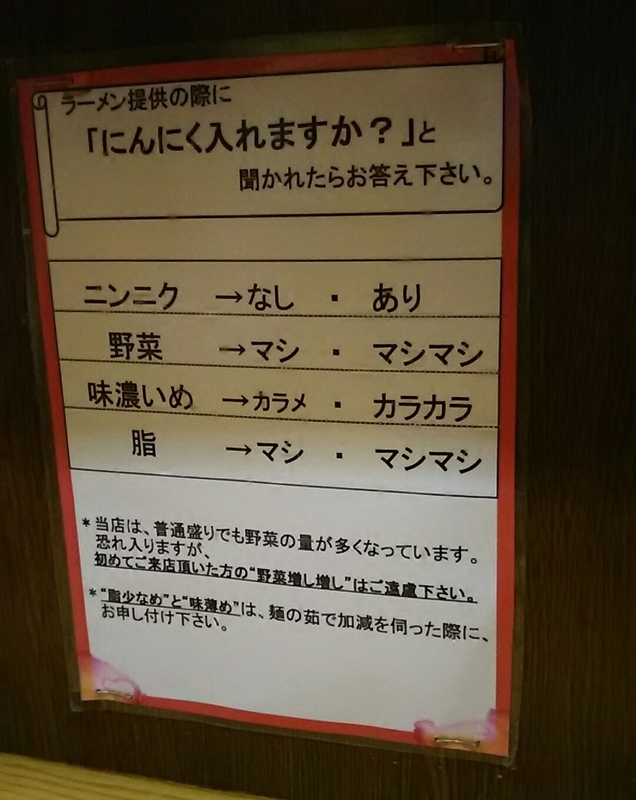 ラーメン提供の際に
「にんにく入れますか？」と
聞かれたらお答え下さい。
ニンニク →なし ・ あり
野菜 →マシ ・ マシマシ
味濃いめ →カラメ ・ カラカラ
脂 →マシ ・ マシマシ
* 当店は、普通盛りでも野菜の量が多くなっています。
恐れ入りますが、
初めてご来店頂いた方の“野菜増し増し”はご遠慮下さい。
* “脂少なめ”と“味薄め”は、麺の茹で加減を伺った際に、
お申し付け下さい。